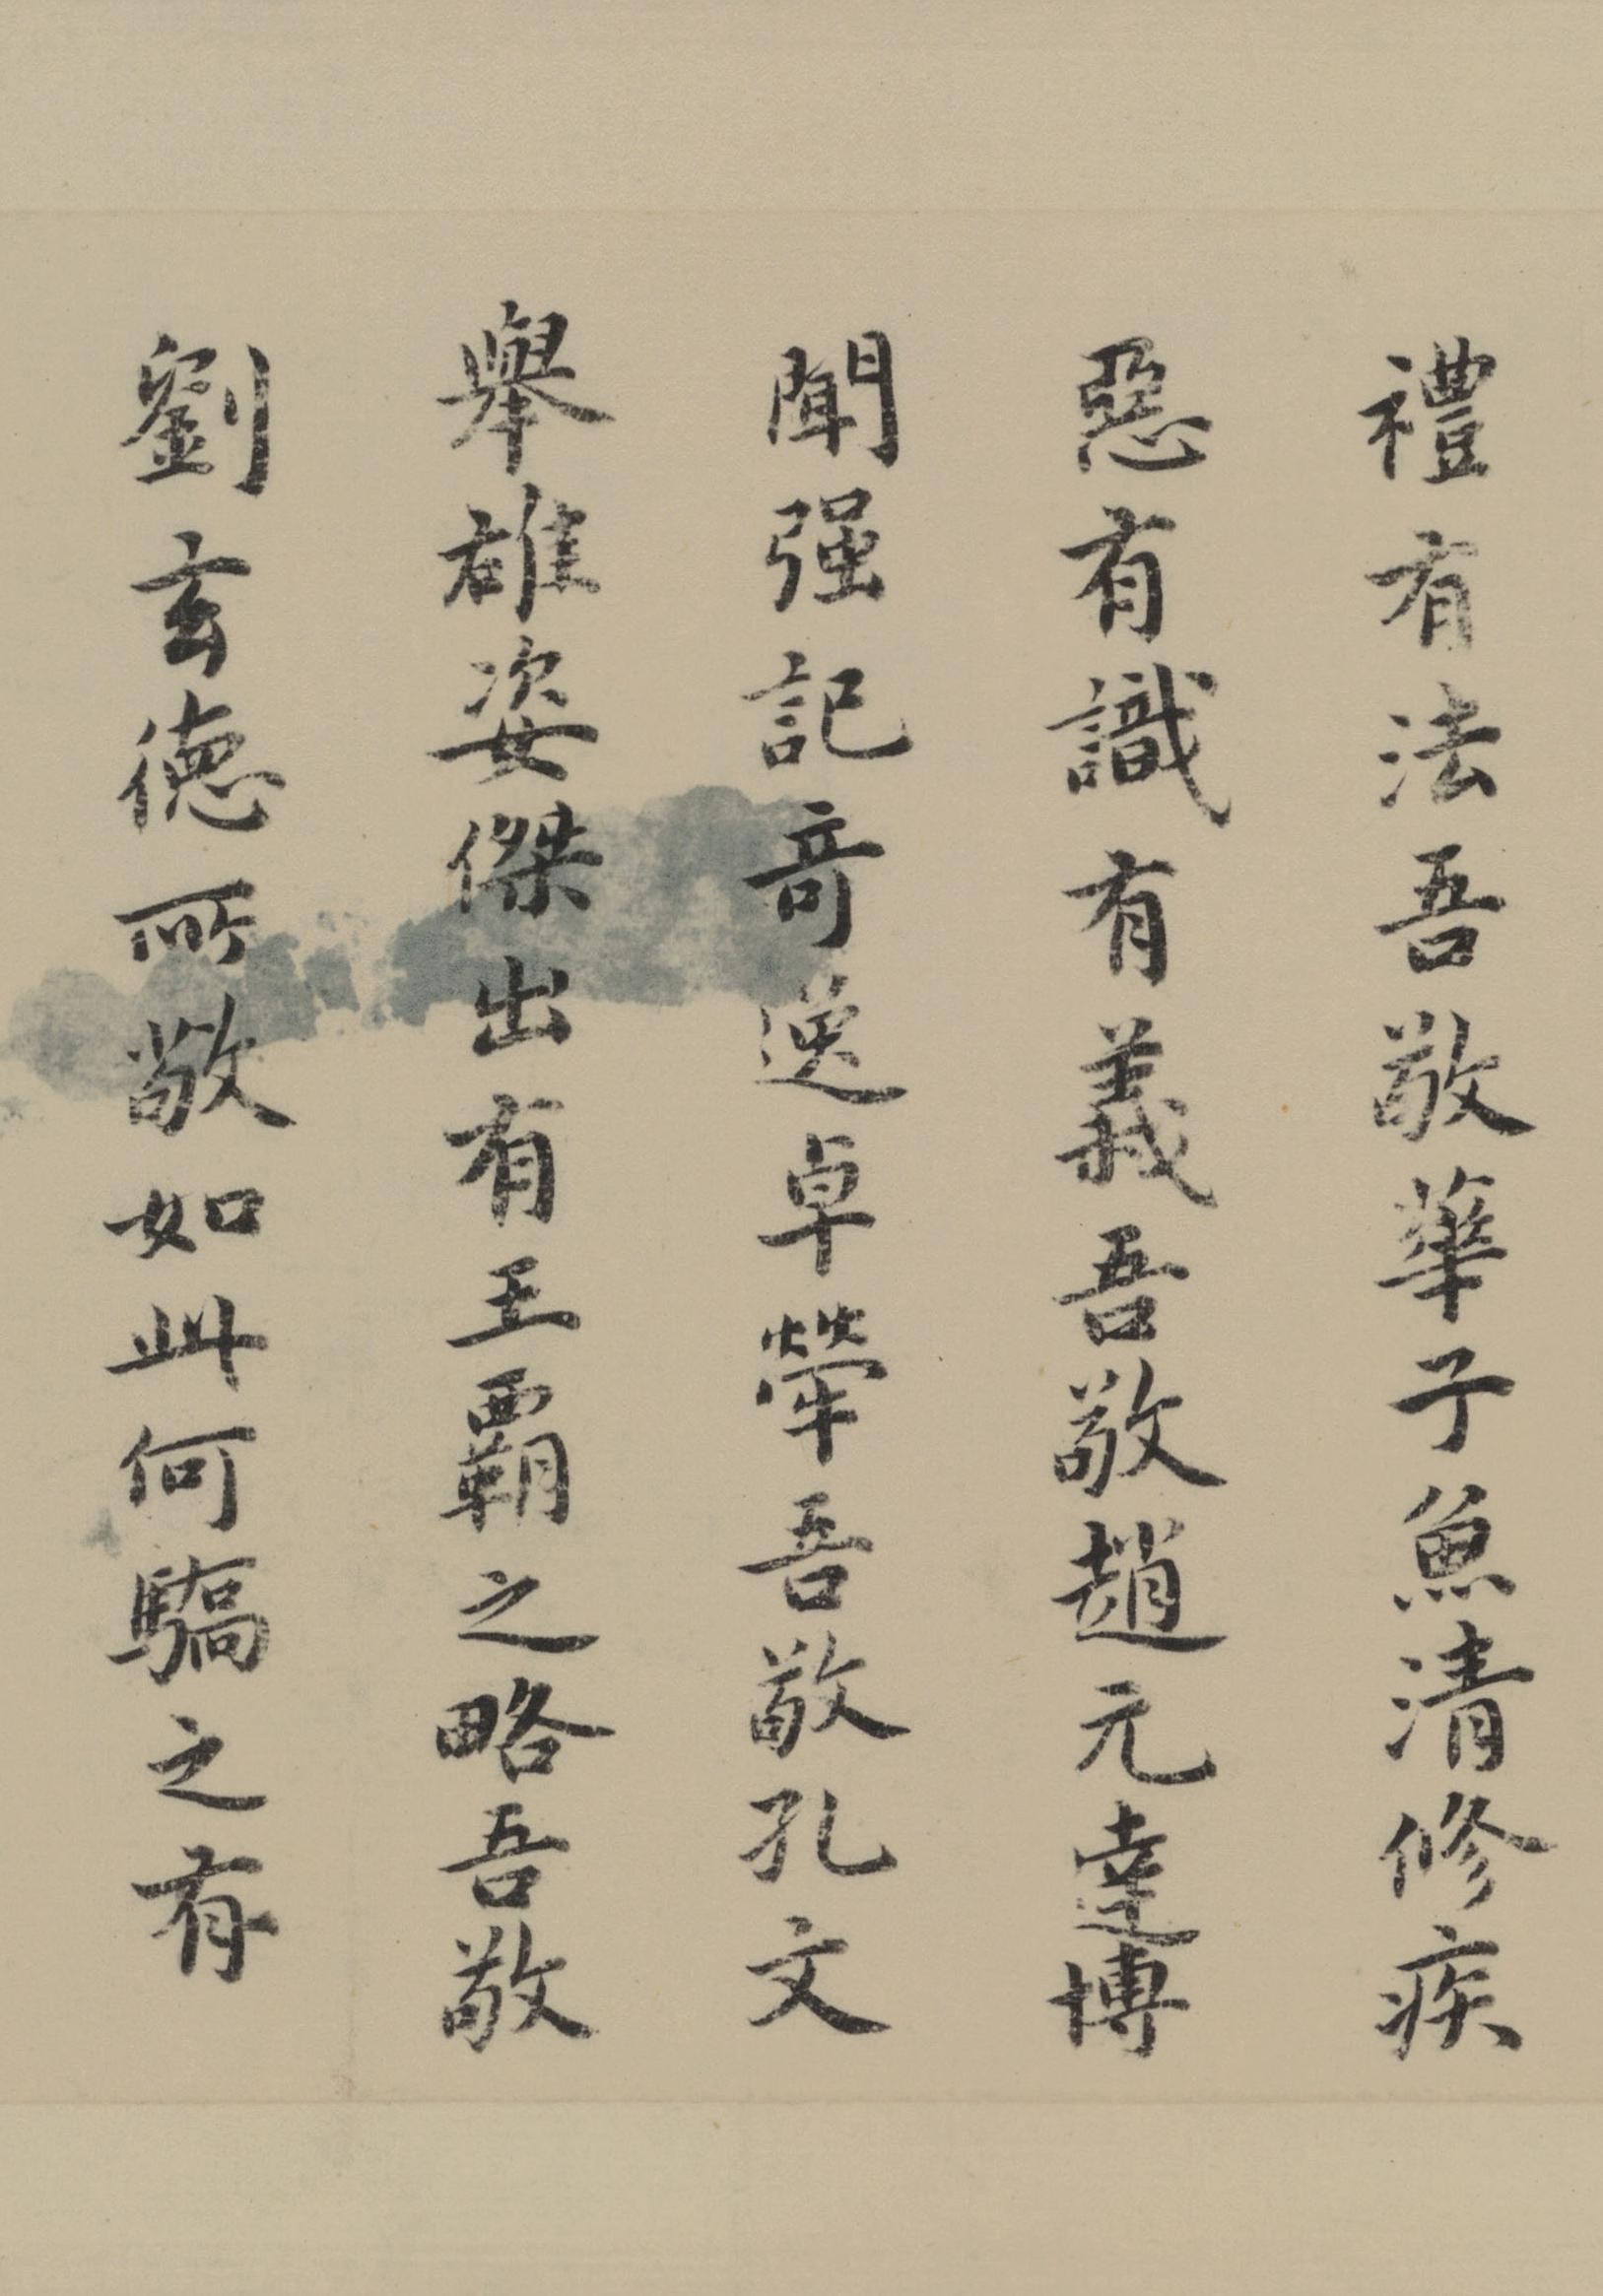 禮有法吾敬華子魚清修疾
惡有識有義吾敬趙元達博
聞强記奇逸卓犖吾敬孔文
舉雄姿傑出有王霸之略吾敬
劉玄德所敬如此何驕之有